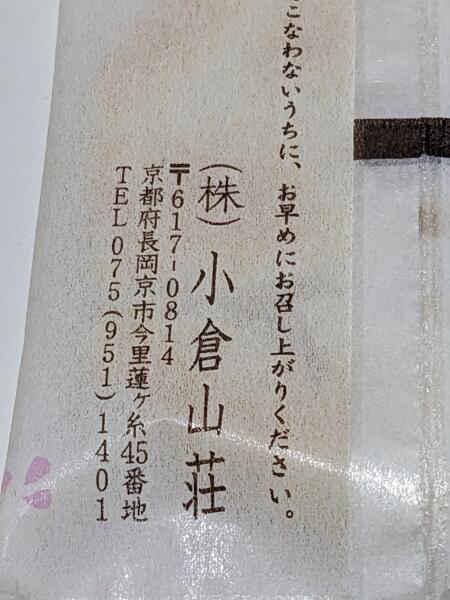 こなわないうちに、お早めにお召し上がりください。
(株)小倉山荘
〒617-0814
京都府長岡京市今里蓮ケ糸45番地
TEL075(951)1401